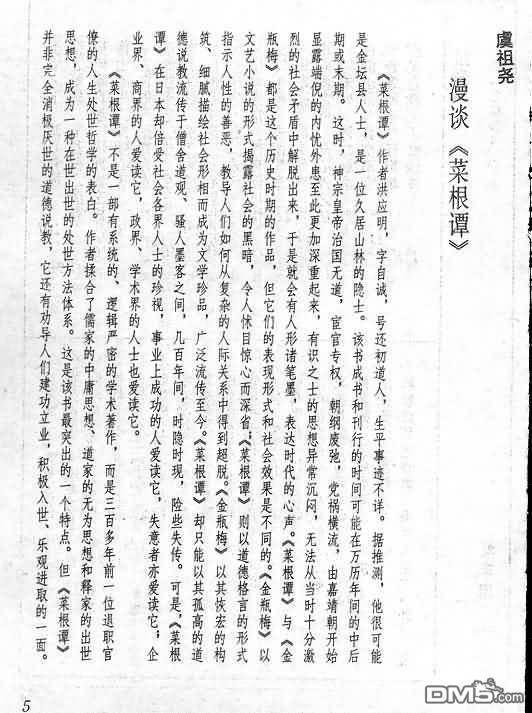 虞祖尧
漫谈《菜根谭》
《菜根谭》作者洪应明，字自诚，号还初道人，生平事迹不详。据推测，他很可能
是金坛县人士，是一位久居山林的隐士。该书成书和刊行的时间可能在万历年间的中后
期或末期。这时，神宗皇帝治国无道，宦官专权，朝纲废弛，党祸横流，由嘉靖朝开始
显露端倪的内忧外患至此更加深重起来，有识之士的思想异常沉闷，无法从当时十分激
烈的社会矛盾中解脱出来，于是就会有人形诸笔墨，表达时代的心声。《菜根谭》与《金
瓶梅》都是这个历史时期的作品，但它们的表现形式和社会效果是不同的。《金瓶梅》以
文艺小说的形式揭露社会的黑暗，令人怵目惊心而深省；《菜根谭》则以道德格言的形式
指示人性的善恶，教导人们如何从复杂的人际关系中得到超脱。《金瓶梅》以其恢宏的构
筑、细腻描绘社会形相而成为文学珍品，广泛流传至今。《菜根谭》却只能以其孤高的道
德说教流传于僧舍道观、骚人墨客之间，几百年间，时隐时现，险些失传。可是，《菜根
谭》在日本却倍受社会各界人士的珍视，事业上成功的人爱读它，失意者亦爱读它；企
业界、商界的人爱读它，政界、学术界的人士也爱读它。
《菜根谭》不是一部有系统的、逻辑严密的学术著作，而是三百多年前一位退职官
僚的人生处世哲学的表白。作者揉合了儒家的中庸思想、道家的无为思想和释家的出世
思想，成为一种在世出世的处世方法体系。这是该书最突出的一个特点。但《菜根谭》
并非完全消极厌世的道德说教，它还有劝导人们建功立业，积极入世、乐观进取的一面。
5
DM5.com